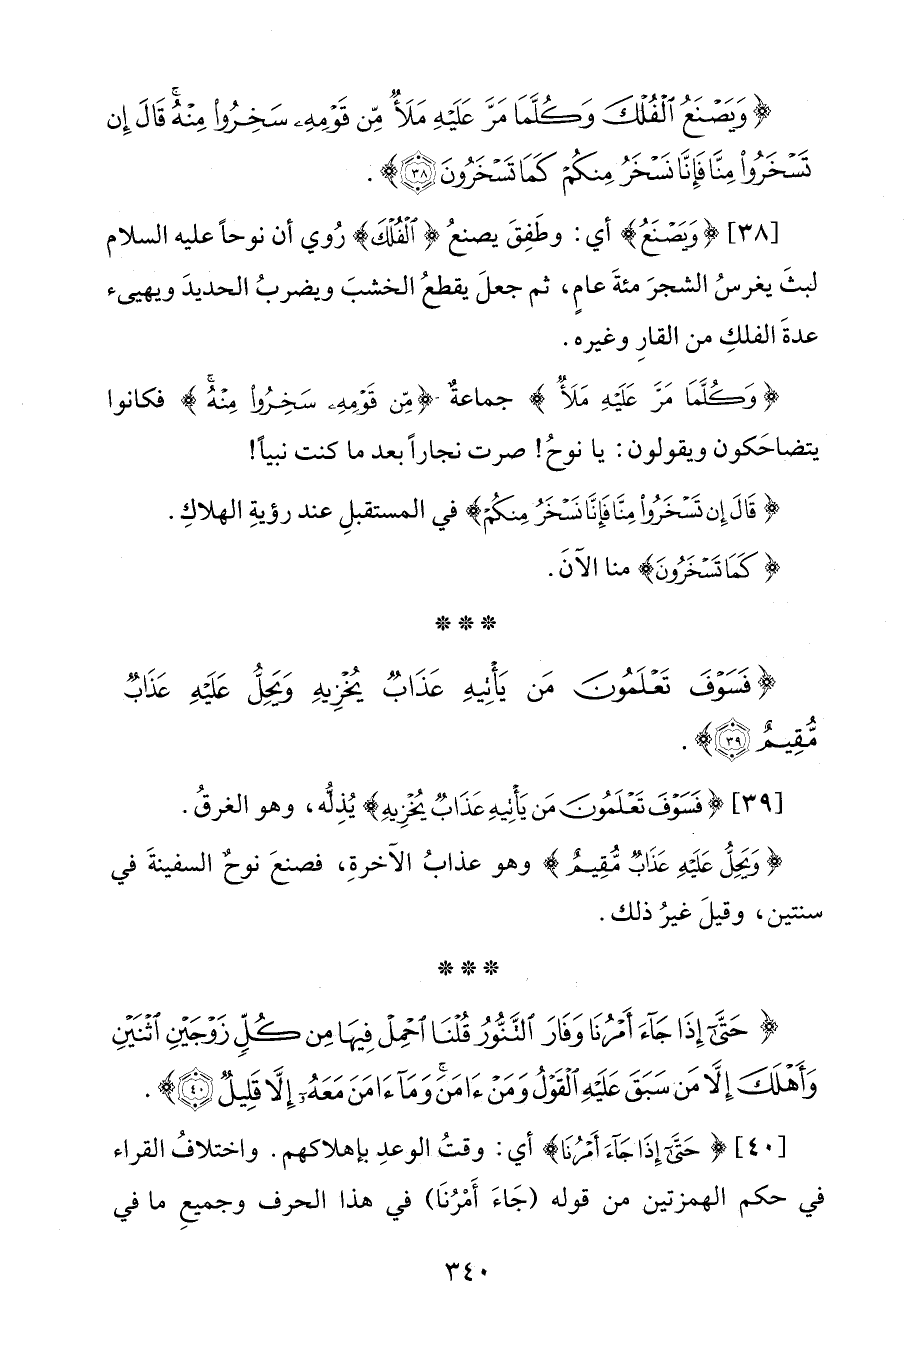 ﴿ وَيَصْنَعُ ٱلْفُلْكَ وَكُلَّمَا مَرَّ عَلَيْهِ مَلَأٌ مِّن قَوْمِهِۦ سَخِرُوا۟ مِنْهُ ۚ قَالَ إِن
تَسْخَرُوا۟ مِنَّا فَإِنَّا نَسْخَرُ مِنكُمْ كَمَا تَسْخَرُونَ ﴿٣٨﴾ ﴾ .
[٣٨] ﴿ وَيَصْنَعُ ﴾ أي: وطَفِقَ يصنعُ ﴿ ٱلْفُلْكَ ﴾ رُوي أن نوحاً عليه السلام
لبثَ يغرسُ الشجرَ مئةَ عامٍ، ثم جعلَ يقطعُ الخشبَ ويضربُ الحديدَ ويهيىء
عدةَ الفلكِ من القارِ وغيره .
﴿ وَكُلَّمَا مَرَّ عَلَيْهِ مَلَأٌ ﴾ جماعةٌ ﴿ مِّن قَوْمِهِۦ سَخِرُوا۟ مِنْهُ ۚ ﴾ فكانوا
يتضاحَكون ويقولون: يا نوحُ! صرت نجاراً بعد ما كنت نبياً!
﴿ قَالَ إِن تَسْخَرُوا۟ مِنَّا فَإِنَّا نَسْخَرُ مِنكُمْ ﴾ في المستقبلِ عند رؤيةِ الهلاكِ .
﴿ كَمَا تَسْخَرُونَ ﴾ منا الآنَ .
* * *
﴿ فَسَوْفَ تَعْلَمُونَ مَن يَأْتِيهِ عَذَابٌ يُخْزِيهِ وَيَحِلُّ عَلَيْهِ عَذَابٌ
مُّقِيمٌ ﴿٣٩﴾ ﴾ .
[٣٩] ﴿ فَسَوْفَ تَعْلَمُونَ مَن يَأْتِيهِ عَذَابٌ يُخْزِيهِ ﴾ يُذِلُّه، وهو الغرقُ .
﴿ وَيَحِلُّ عَلَيْهِ عَذَابٌ مُّقِيمٌ ﴾ وهو عذابُ الآخرةِ، فصنعَ نوحٌ السفينةَ في
سنتين، وقيلَ غيرُ ذلك .
* * *
﴿ حَتَّىٰٓ إِذَا جَآءَ أَمْرُنَا وَفَارَ ٱلتَّنُّورُ قُلْنَا ٱحْمِلْ فِيهَا مِن كُلٍّ زَوْجَيْنِ ٱثْنَيْنِ
وَأَهْلَكَ إِلَّا مَن سَبَقَ عَلَيْهِ ٱلْقَوْلُ وَمَنْ ءَامَنَ ۚ وَمَآ ءَامَنَ مَعَهُۥٓ إِلَّا قَلِيلٌ ﴿٤٠﴾ ﴾ .
[٤٠] ﴿ حَتَّىٰٓ إِذَا جَآءَ أَمْرُنَا ﴾ أي: وقتُ الوعدِ بإهلاكهم . واختلافُ القراء
في حكم الهمزتين من قوله (جَاءَ أَمْرُنَا) في هذا الحرف وجميعِ ما في
٣٤٠